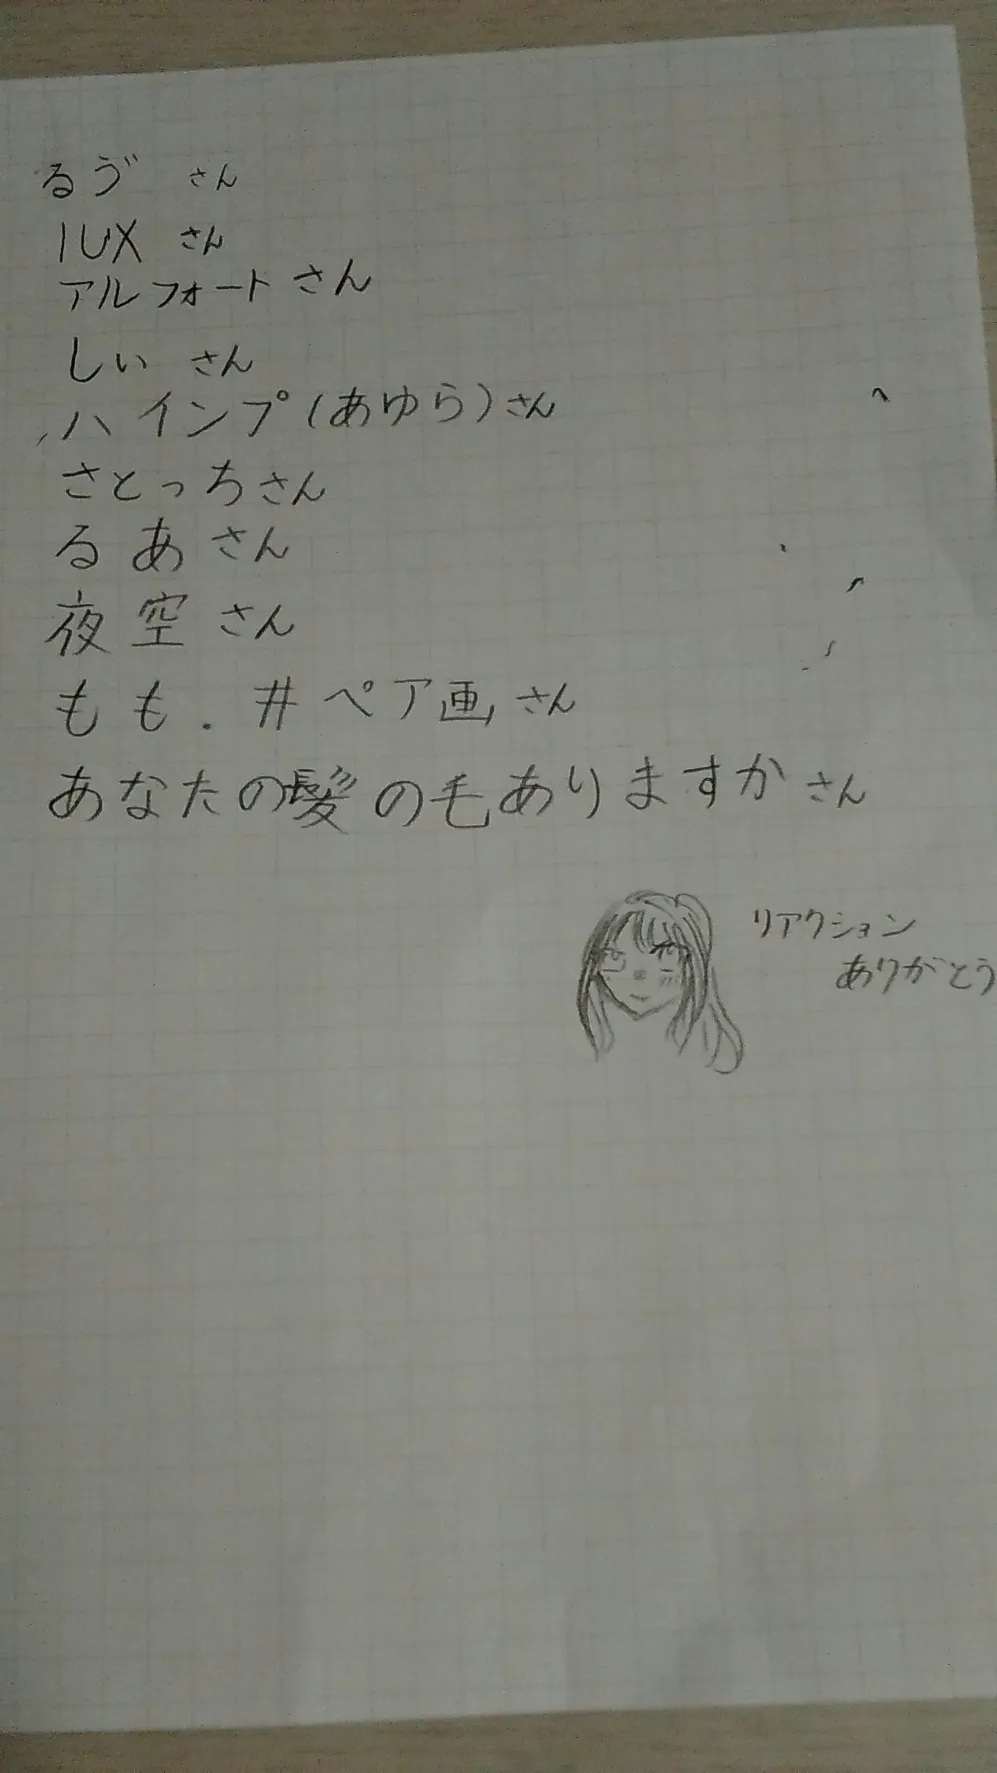 るゔ さん
IUX さん
アルフォートさん
しぃ さん
ハインプ(あゆら)さん
さとっちさん
るあさん
夜空さん
もも.#ペア画さん
あなたの髪の毛ありますかさん
リアクション
ありがとう